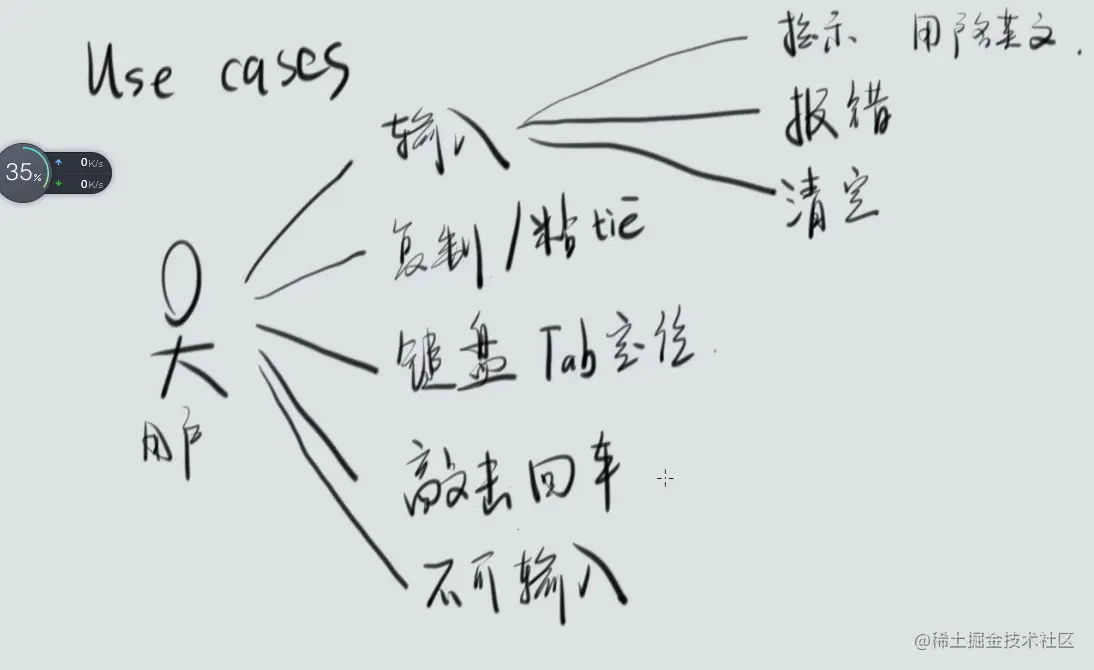 Use cases
输入
提示 用户名英文.
报错
清空
35%
0K/s
0K/s
复制/粘tiē
键盘 Tab定位
用户
敲击回车
不可输入
@稀土掘金技术社区